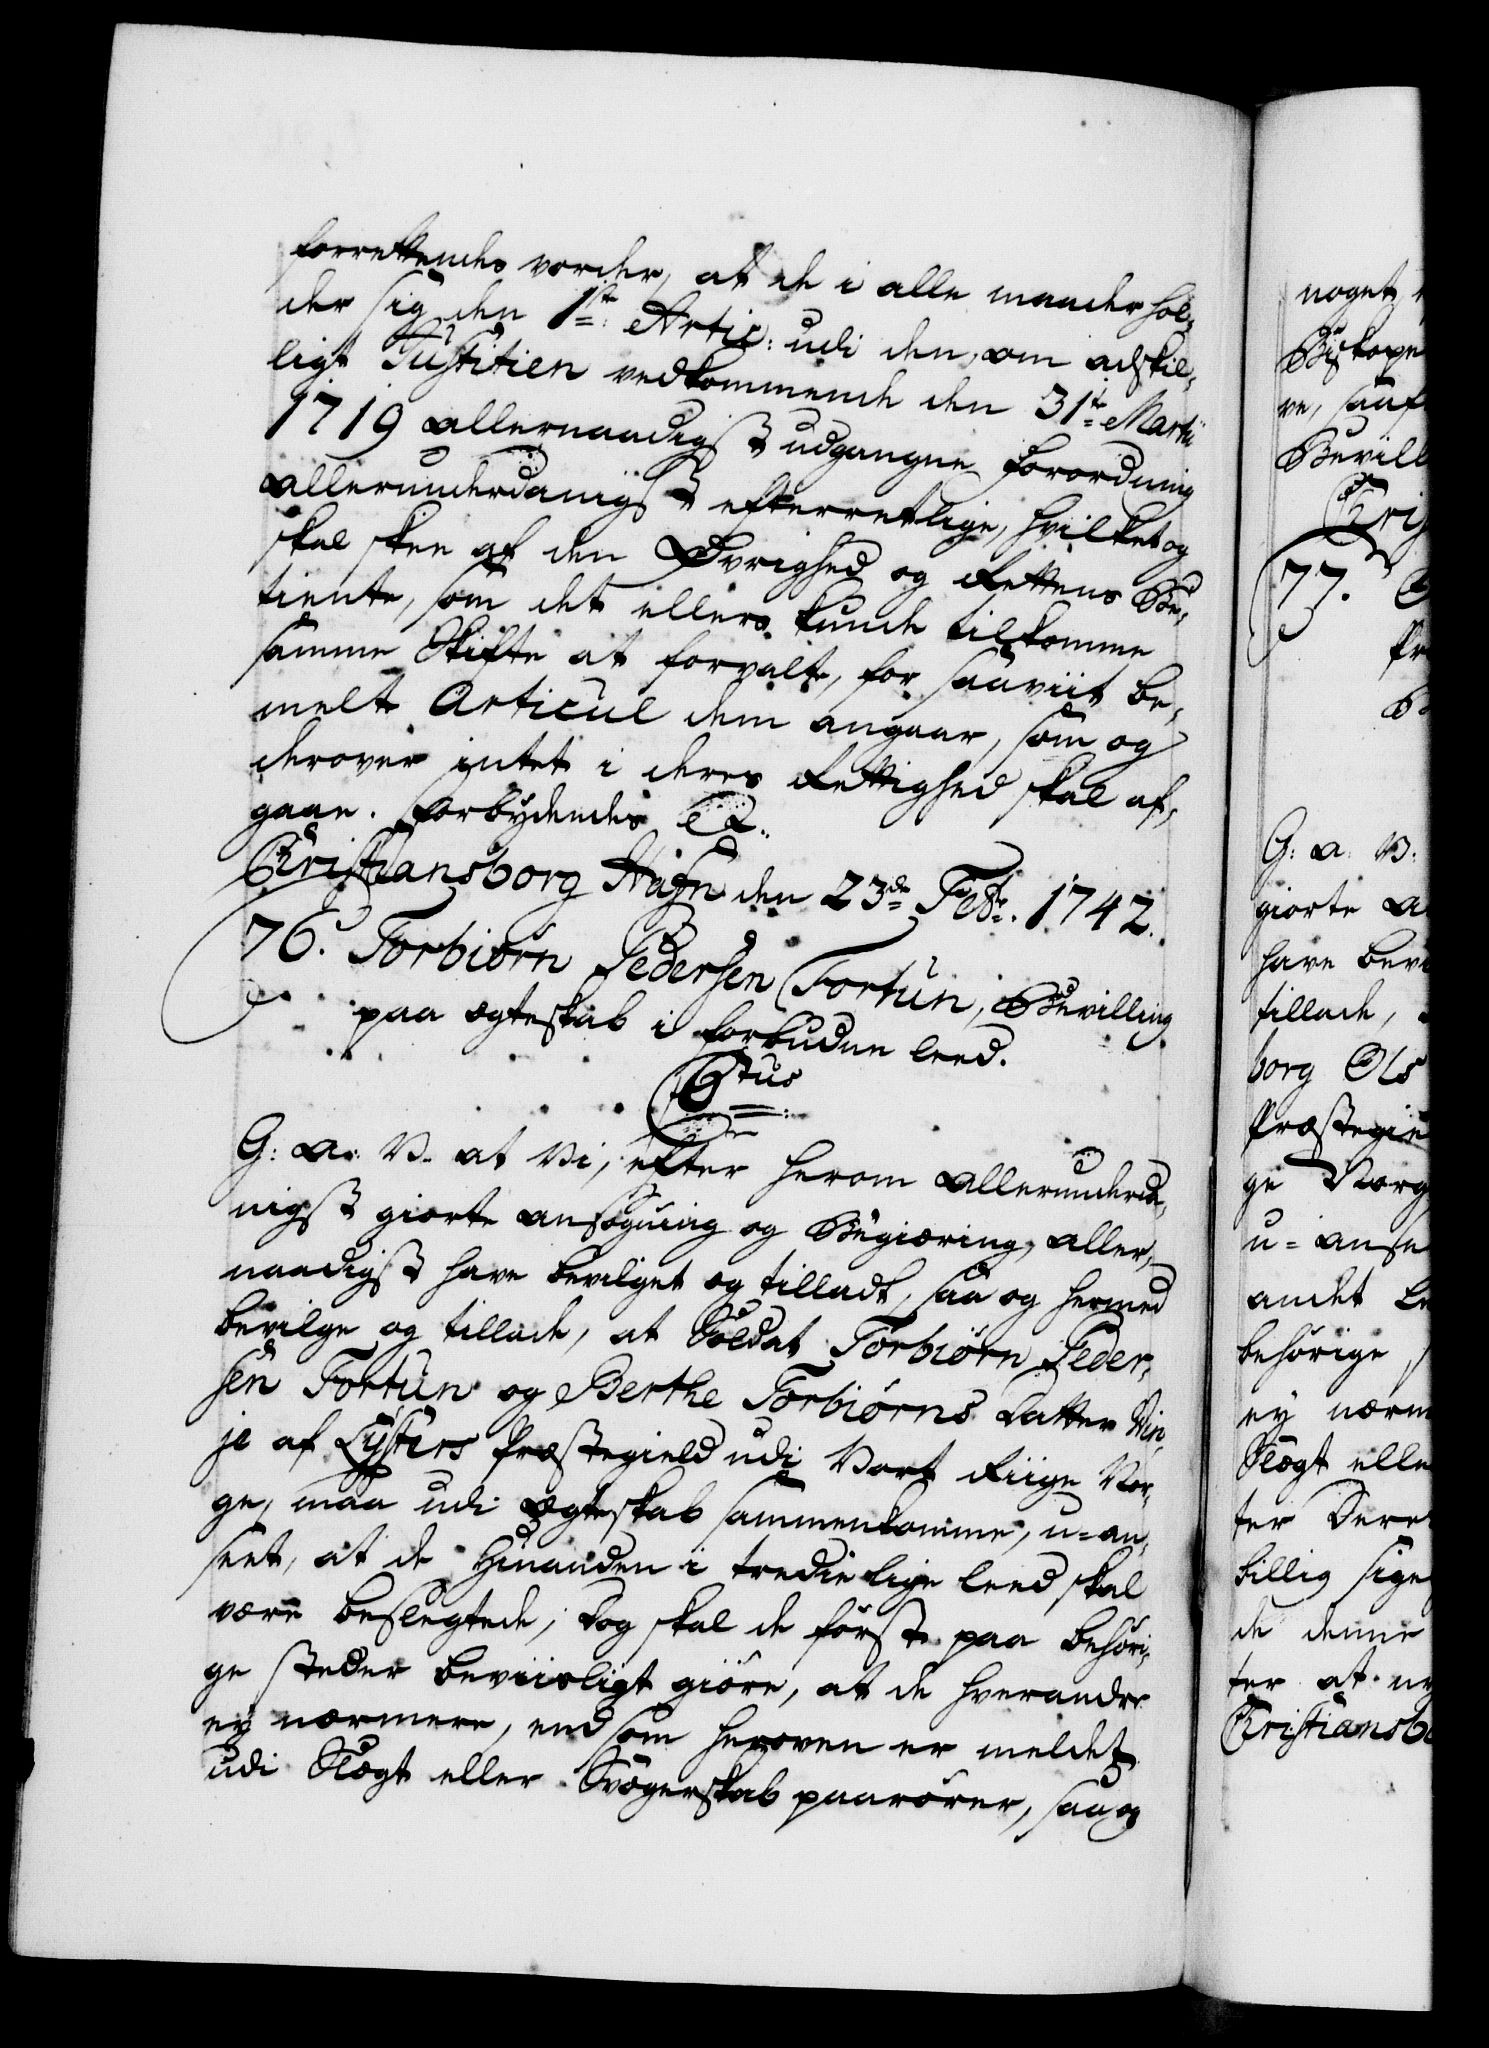 forrettendes vorder, at de i alle maader hol-
der sig den 1ste Artic: udi den, om adskil-
ligt Justitien vedkommende den 31te Martii
1719 allernaadigst udgangne Forordning
allerunderdanigst efterretlige, hvilket og
skal skee af den Øvrighed og Rettens Be-
tiente, som det ellers kunde tilkomme
samme Skifte at forvalte, for saaviit be-
melte Articul dem angaar, som og
derover intet i deres Rettighed skal af-
gaae. Forbydendes etc.
Christiansborg Hafn den 23de Febr. 1742.
76. Torbiørn Pedersen Fortun, Bevilling
paa ægteskab i forbuden leed.
C 6tus
G: A: V. at Vi, efter herom allerunderda-
nigst giorte ansøgning og Begiæring, aller-
naadigst have bevilget og tilladt, saa og hermed
bevilge og tillade, at Soldat Torbiørn Peder-
sen Fortun og Berthe Torbiørns Datter Vin-
je af Lysters Præstegield udi Vort Riige Nor-
ge, maa udi ægteskab sammenkomme, u-an-
seet, at de hinanden i tredie lige leed skal
være beslegtede; Dog skal de først paa behøri-
ge steder beviisligt giøre, at de hverandre
ey nærmere, end som heroven er meldet
udi Slægt eller Svogerskab paarører, saa og
noget
Biskope
ve, saaf
Bevill
Chris
77.
Pr
B
G: A: V:
giorte a
have bevi
tillade,
borg Ols
Præstegie
ge Norg
u-anse
andet le
behørige
ey nærm
Slægt elle
ter Dere
billig sige
de denne
ter at ny
Christiansbo